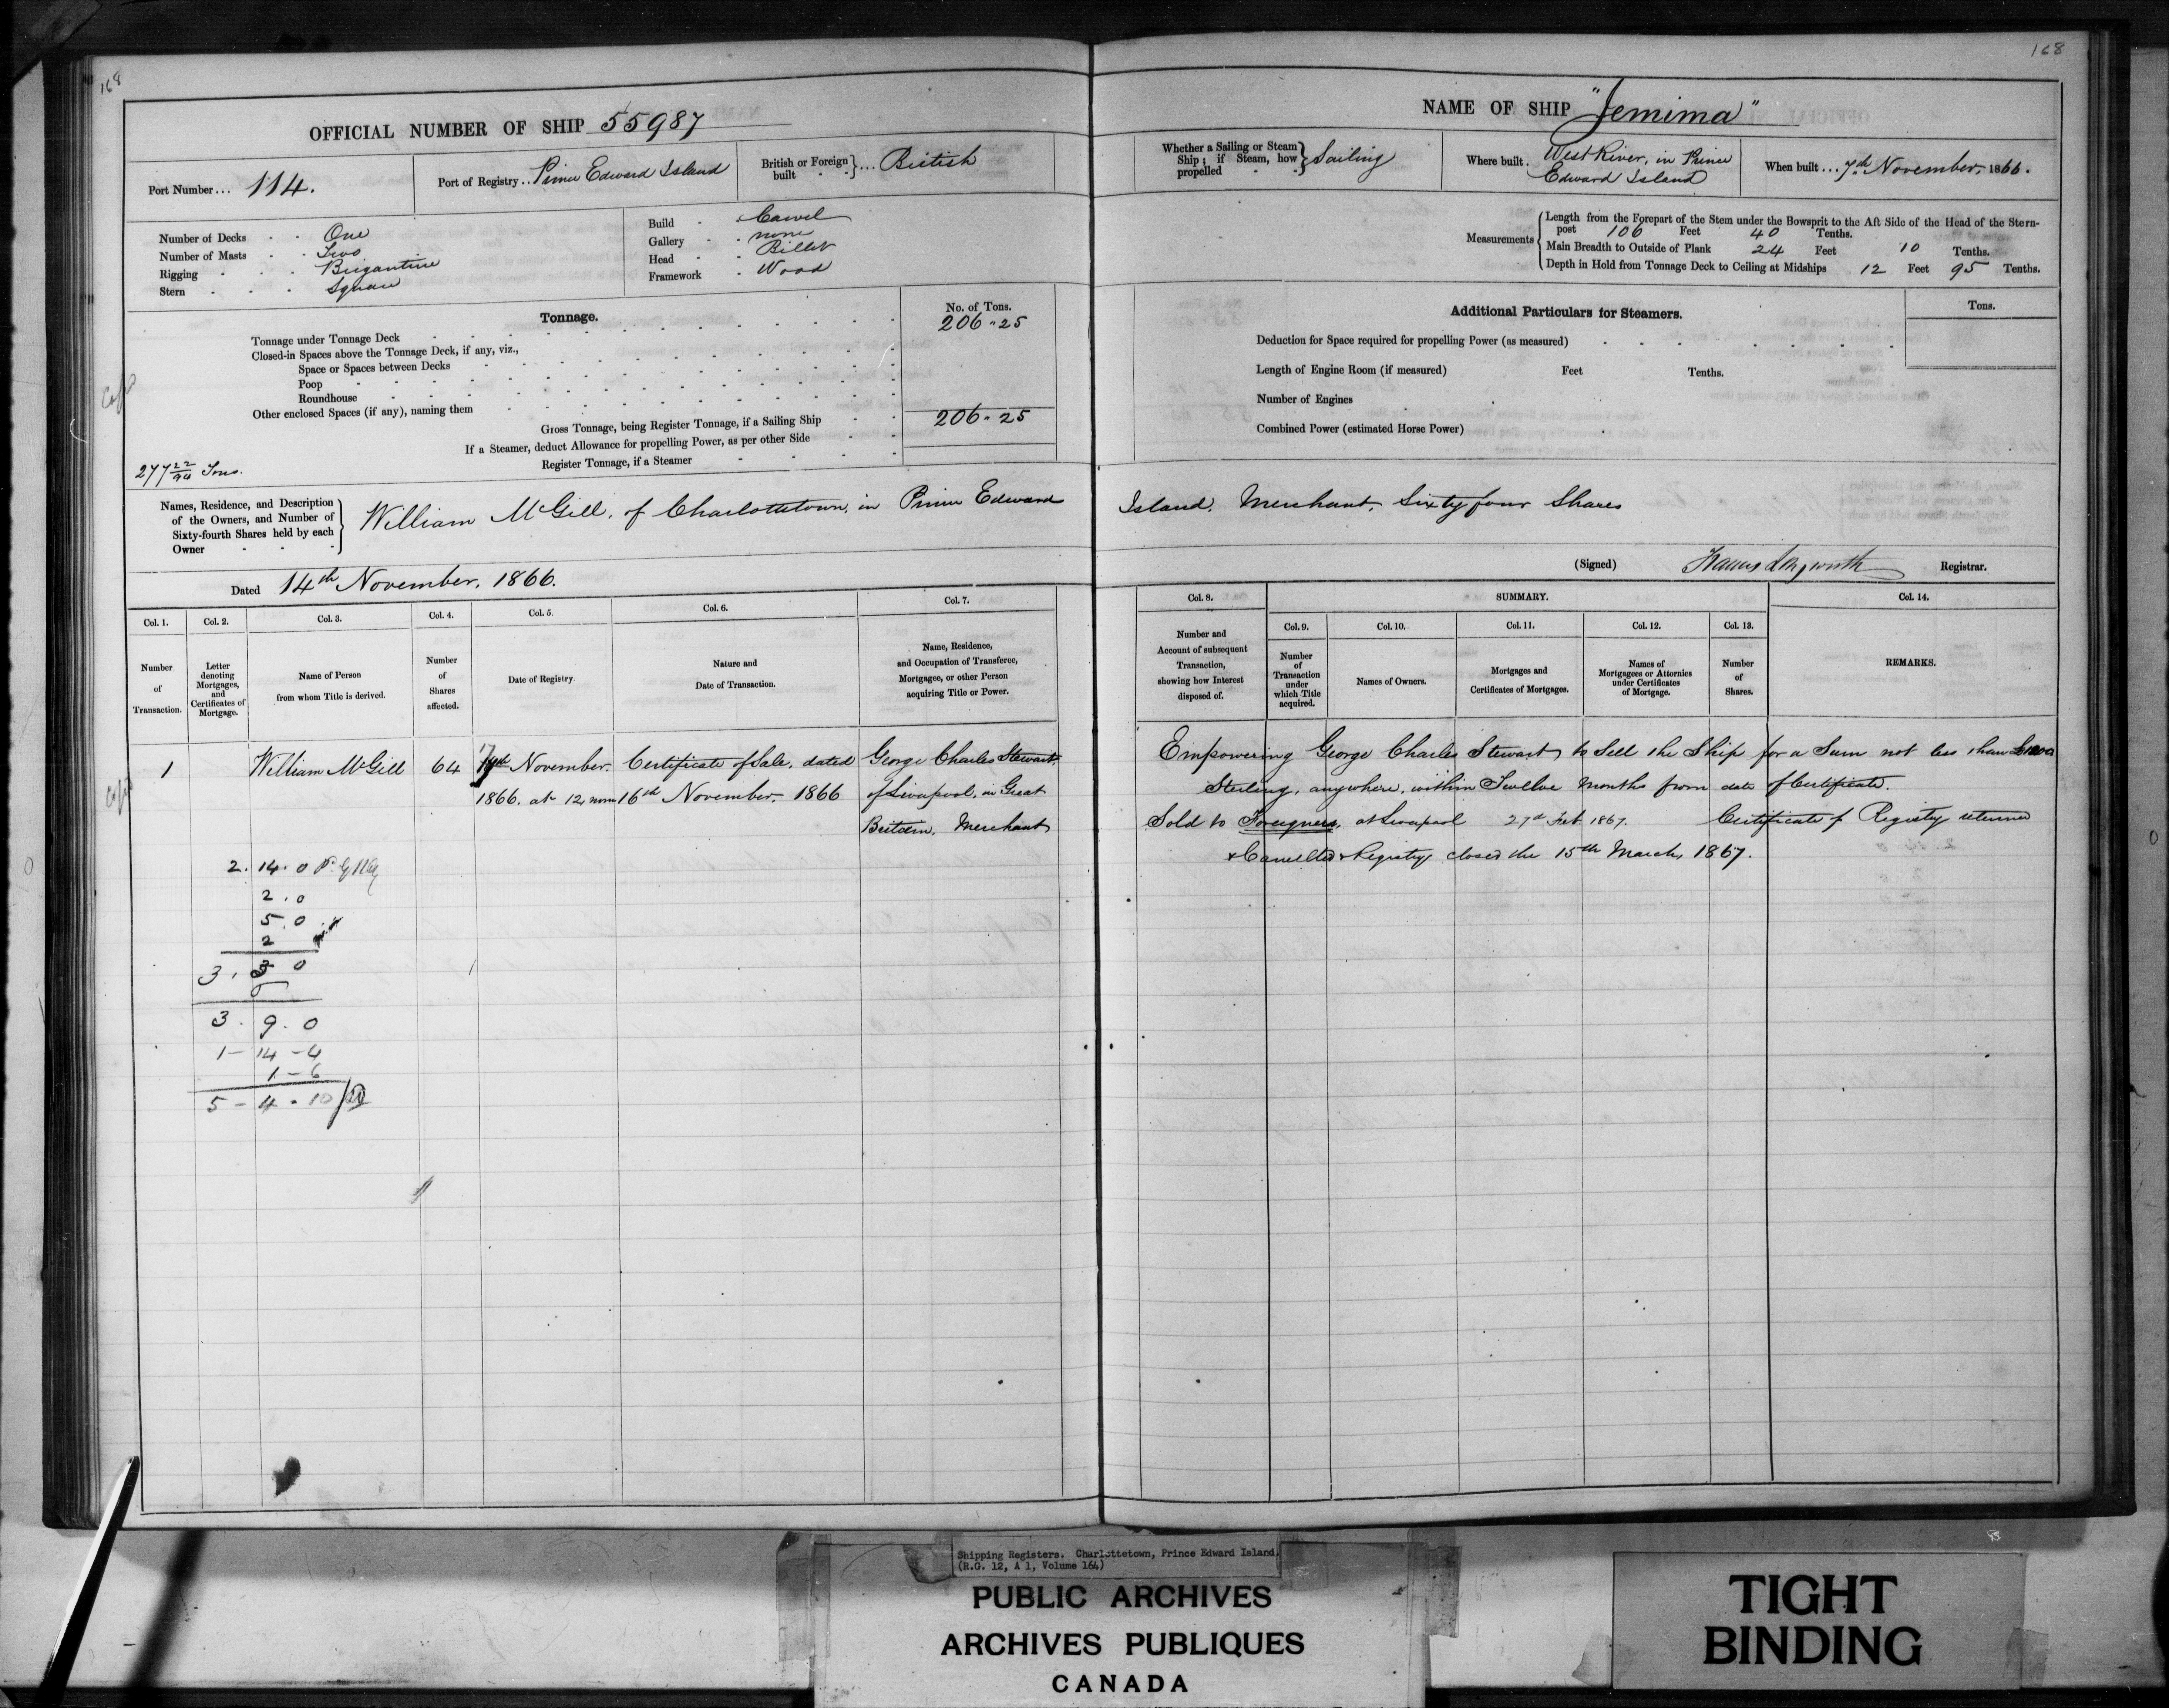 168
168
OFFICIAL NUMBER OF SHIP 55987
NAME OF SHIP "Jemima"
Port Number... 114.
Port of Registry.. Prince Edward Island
British or Foreign built } ... British
Whether a Sailing or Steam Ship; if Steam, how propelled } Sailing
Where built. West River, in Prince Edward Island
When built... 7th November, 1866.
Number of Decks One
Number of Masts Two
Rigging Brigantine
Stern Square
Build Carvel
Gallery none
Head Billet
Framework Wood
Measurements { Length from the Forepart of the Stem under the Bowsprit to the Aft Side of the Head of the Stern-
post 106 Feet 40 Tenths.
Main Breadth to Outside of Plank 24 Feet 10 Tenths.
Depth in Hold from Tonnage Deck to Ceiling at Midships 12 Feet 95 Tenths.
Tonnage.
No. of Tons.
Tonnage under Tonnage Deck 206 " 25
Closed-in Spaces above the Tonnage Deck, if any, viz.,
Space or Spaces between Decks
Poop
Roundhouse
Other enclosed Spaces (if any), naming them
Gross Tonnage, being Register Tonnage, if a Sailing Ship 206 " 25
If a Steamer, deduct Allowance for propelling Power, as per other Side
Register Tonnage, if a Steamer
277 22/94 Tons.
Additional Particulars for Steamers.
Tons.
Deduction for Space required for propelling Power (as measured)
Length of Engine Room (if measured) Feet Tenths.
Number of Engines
Combined Power (estimated Horse Power)
Names, Residence, and Description
of the Owners, and Number of
Sixty-fourth Shares held by each
Owner
William McGill, of Charlottetown, in Prince Edward Island, Merchant, Sixty four Shares
Dated 14th November, 1866.
(Signed) Francis Longworth Registrar.
Col. 1. Col. 2. Col. 3. Col. 4. Col. 5. Col. 6. Col. 7.
Number of Transaction.
Letter denoting Mortgages, and Certificates of Mortgage.
Name of Person from whom Title is derived.
Number of Shares affected.
Date of Registry.
Nature and Date of Transaction.
Name, Residence, and Occupation of Transferee, Mortgagee, or other Person acquiring Title or Power.
Col. 8. SUMMARY. Col. 14.
Col. 9. Col. 10. Col. 11. Col. 12. Col. 13.
Number and Account of subsequent Transaction, showing how Interest disposed of.
Number of Transaction under which Title acquired.
Names of Owners.
Mortgages and Certificates of Mortgages.
Names of Mortgagees or Attornies under Certificates of Mortgage.
Number of Shares.
REMARKS.
1 William McGill 64 17th November, Certificate of Sale, dated George Charles Stewart,
1866. at 12 noon 16th November, 1866 of Liverpool, in Great
Britain, Merchant
Empowering George Charles Stewart to Sell the Ship for a Sum not less than
Sterling, anywhere, within Twelve Months from date of Certificate.
Sold to Foreigners, at Liverpool 27th Feb 1867. Certificate of Registry returned
& Cancelled & Registry closed the 15th March, 1867.
2. 14. 0
2. 0
5. 0
2
3. 3 0
3. 9. 0
1 - 14 - 4
1 - 6
5 - 4 - 10
Shipping Registers. Charlottetown, Prince Edward Island.
(R.G. 12, A 1, Volume 164)
PUBLIC ARCHIVES
ARCHIVES PUBLIQUES
CANADA
TIGHT
BINDING